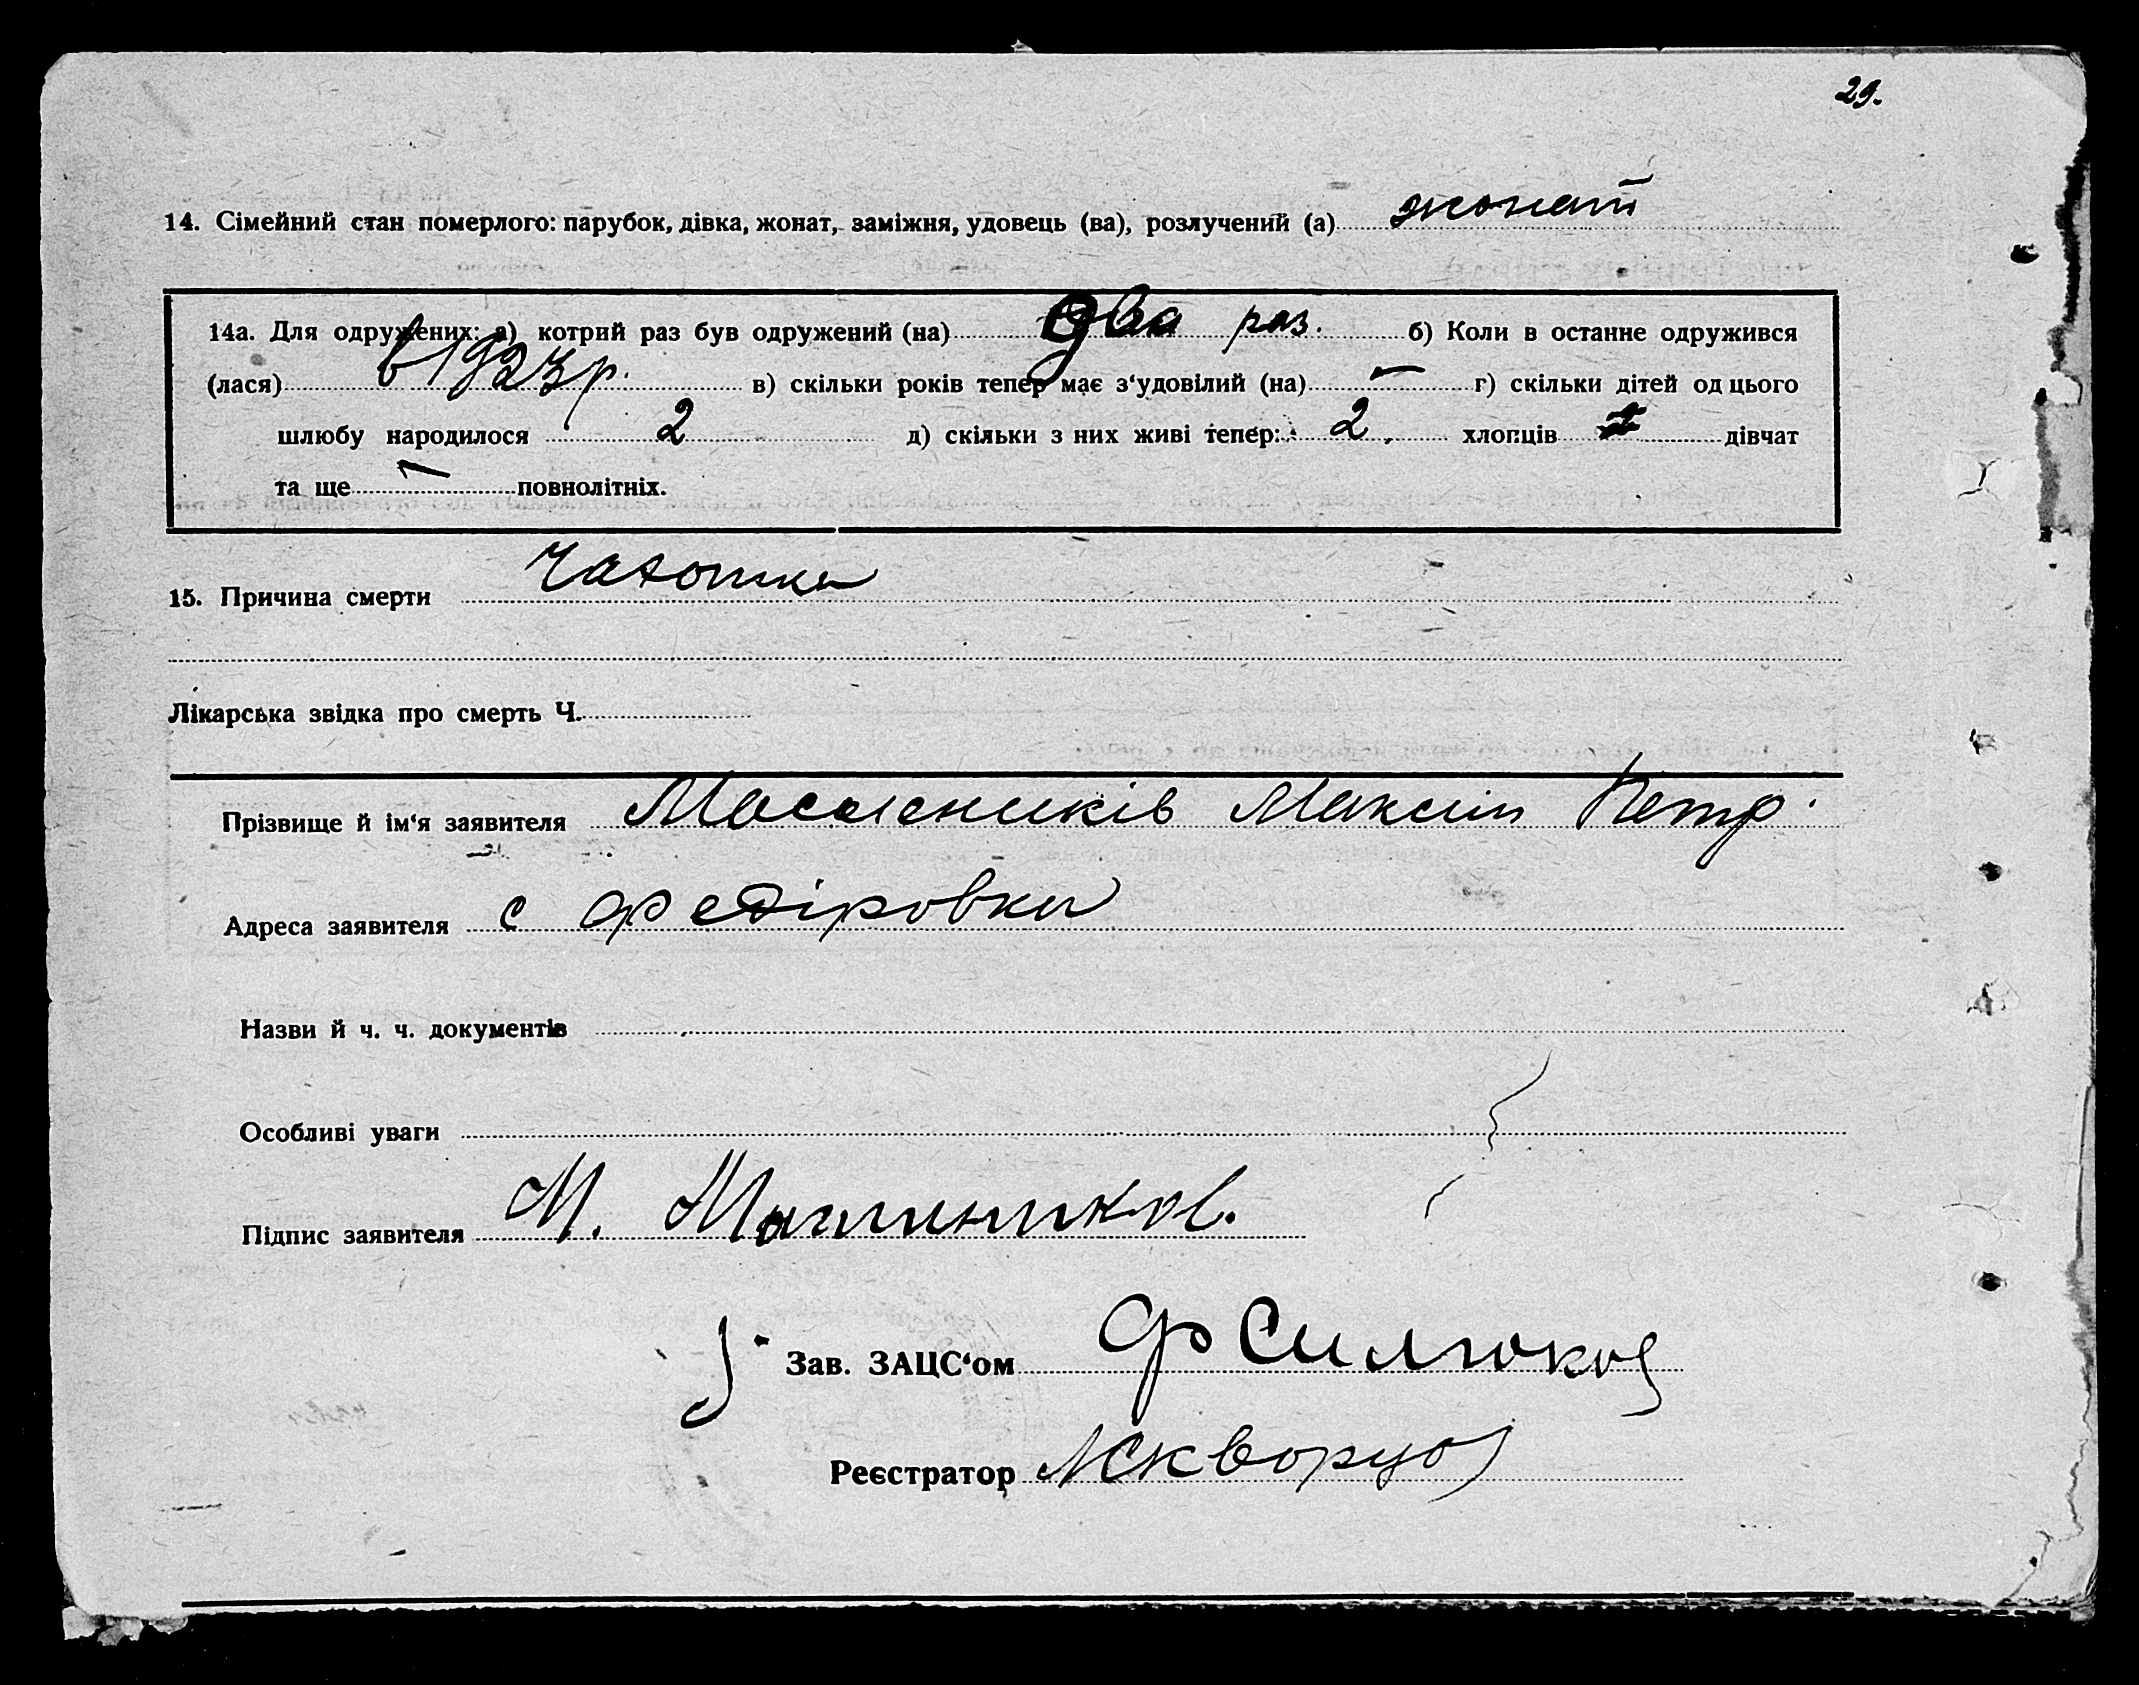 29.
14. Сімейний стан померлого: парубок, дівка, жонат, заміжня, удовець (ва), розлучений (а) жонат
14а. Для одружених: а) котрий раз був одружений (на) два раз. б) Коли в останне одружився
(лася) в 1923 р. в) скільки років тепер має з‘удовілий (на) — г) скільки дітей од цього
шлюбу народилося 2 д) скільки з них живі тепер: 2 хлопців дівчат
та ще — повнолітніх.
15. Причина смерти Чахотка
Лікарська звідка про смерть Ч.
Прізвище й ім‘я заявителя Маслеників Максим Петр.
Адреса заявителя с Федіровка
Назви й ч. ч. документів
Особливі уваги
Підпис заявителя М. Маслиников.
Зав. ЗАЦС‘ом Ф Силюков
Реєстратор Скворцов